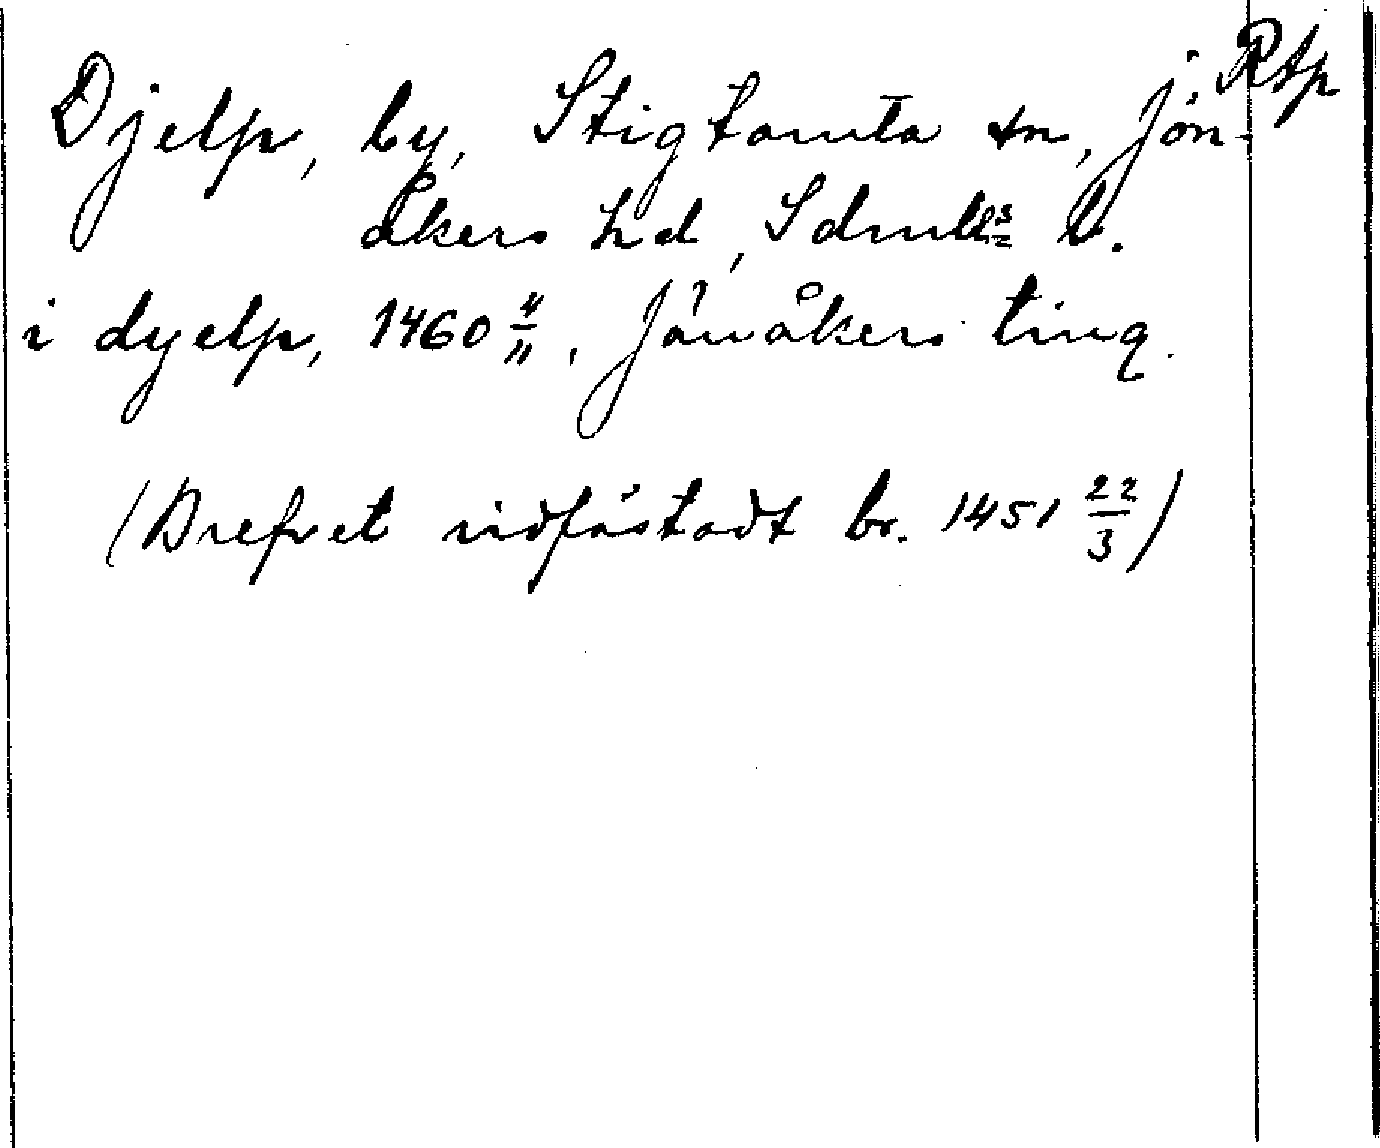 Rtp
Djelp, by, Stigtomta sn, Jön-
åkers hd, Sdmls l.
i dyelp, 1460 4/11, Jönåkers ting.
(Brefvet vidfästadt br. 1451 22/3)